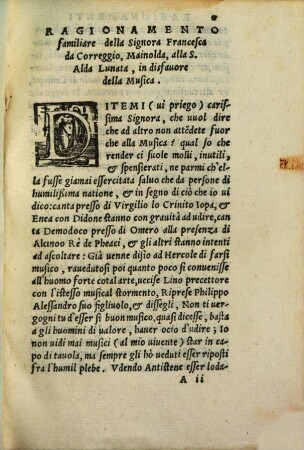 RAGIONAMENTO
familiare della Signora Francesca
da Correggio, Mainolda, alla S.
Alda Lunata, in disfauore
della Musica.
DITEMI (ui priego) caris
sima Signora, che uuol dire
che ad altro non attēdete fuor
che alla Musica? qual so che
render ci suole molli, inutili,
& spensierati, ne parmi ch'el
la fusse giamai essercitata saluo che da persone di
humilissima natione, & in segno di ciò che io ui
dico: canta presso di Virgilio lo Crinito Iopa, &
Enea con Didone stanno con grauità ad udire, can
ta Demodoco presso di Omero alla presenza di
Alcinoo Re de Pheaci, & gli altri stanno intenti
ad ascoltare: Già uenne disio ad Hercole di farsi
musico, rauedutosi poi quanto poco si conuenisse
all'huomo forte cotal arte, uccise Lino precettore
con l'istesso musical stormento, Riprese Philippo
Alessandro suo figliuolo, & dissegli. Non ti uer-
gogni tu d'esser sì buon musico, quasi dicesse, basta
a gli huomini di ualore, hauer ocio d'udire; Io
non uidi mai musici (al mio uiuente) star in ca
po di tauola, ma sempre gli hò ueduti esser riposti
fra l'humil plebe. Vdendo Antistene esser loda-
A ii